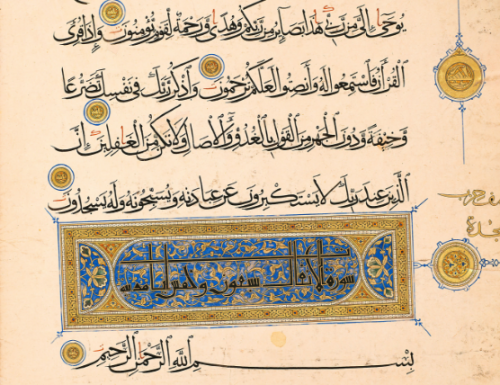 يوحى إلي من ربي هذا بصاير من ربكم وهدى ورحمة لقوم يؤمنون وإذا قرئ
القرآن فاستمعوا له وأنصتوا لعلكم ترحمون واذكر ربك في نفسك تضرعا
وخيفة ودون الجهر من القول بالغدو والآصال ولا تكن من الغافلين إن
الذين عند ربك لا يستكبرون عن عبادته ويسبحونه وله يسجدون
سورة الأنفال سبعون وخمس آيات
بسم الله الرحمن الرحيم